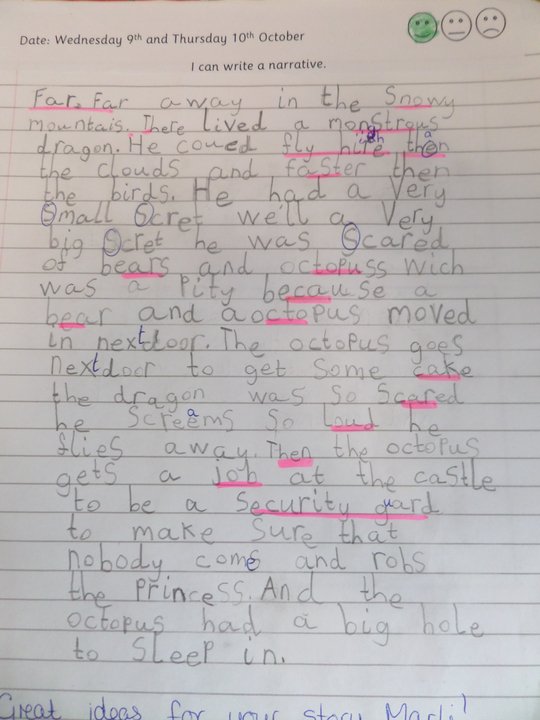 Date: Wednesday 9th and Thursday 10th October
I can write a narrative.
Far. Far away in the Snowy
mountais. There lived a monstrous
dragon. He coued fly hire then
the clouds and faster then
the birds. He had a Very
Small Scret we'll a Very
big Scret he was Scared
of bears and octopuss wich
was a Pity because a
bear and aoctopus moved
in nextdoor. The octopus goes
nextdoor to get Some cake
the dragon was so Scared
he Screams so loud he
flies away. Then the octopus
gets a job at the castle
to be a Security guard
to make Sure that
nobody come and robs
the Princess. And the
octopus had a big hole
to Sleep in.
Great ideas for your story Marli!